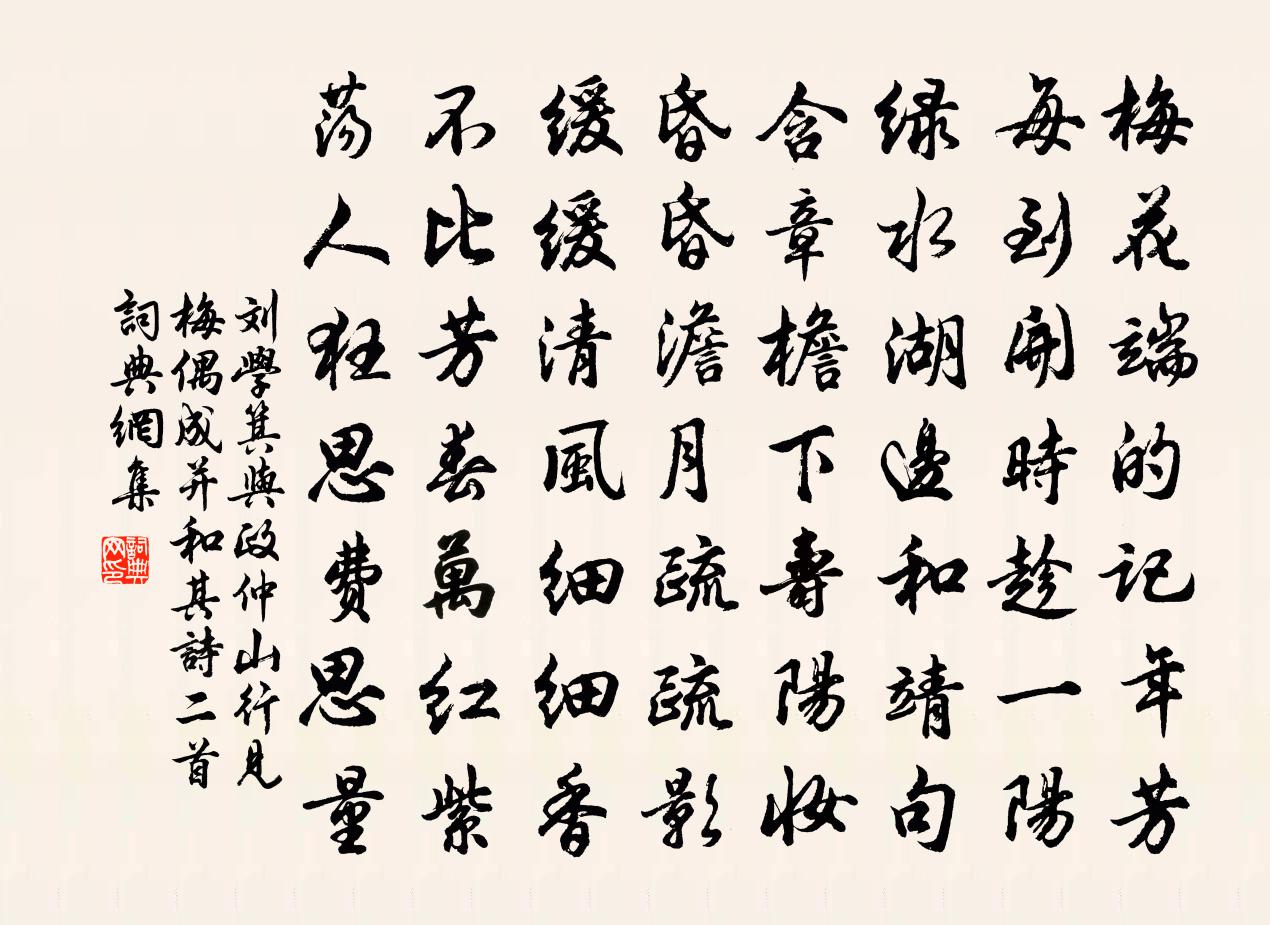 梅花端的記年芳
每到開時趁一陽
緑水湖邊和靖句
含章檐下壽陽妝
昏昏澹月疏疏影
緩緩清風細細香
不比芳春萬紅紫
蕩人狂思費思量
刘學箕與政仲山行見
梅偶成并和其詩二首
詞典網集
詞典
网印